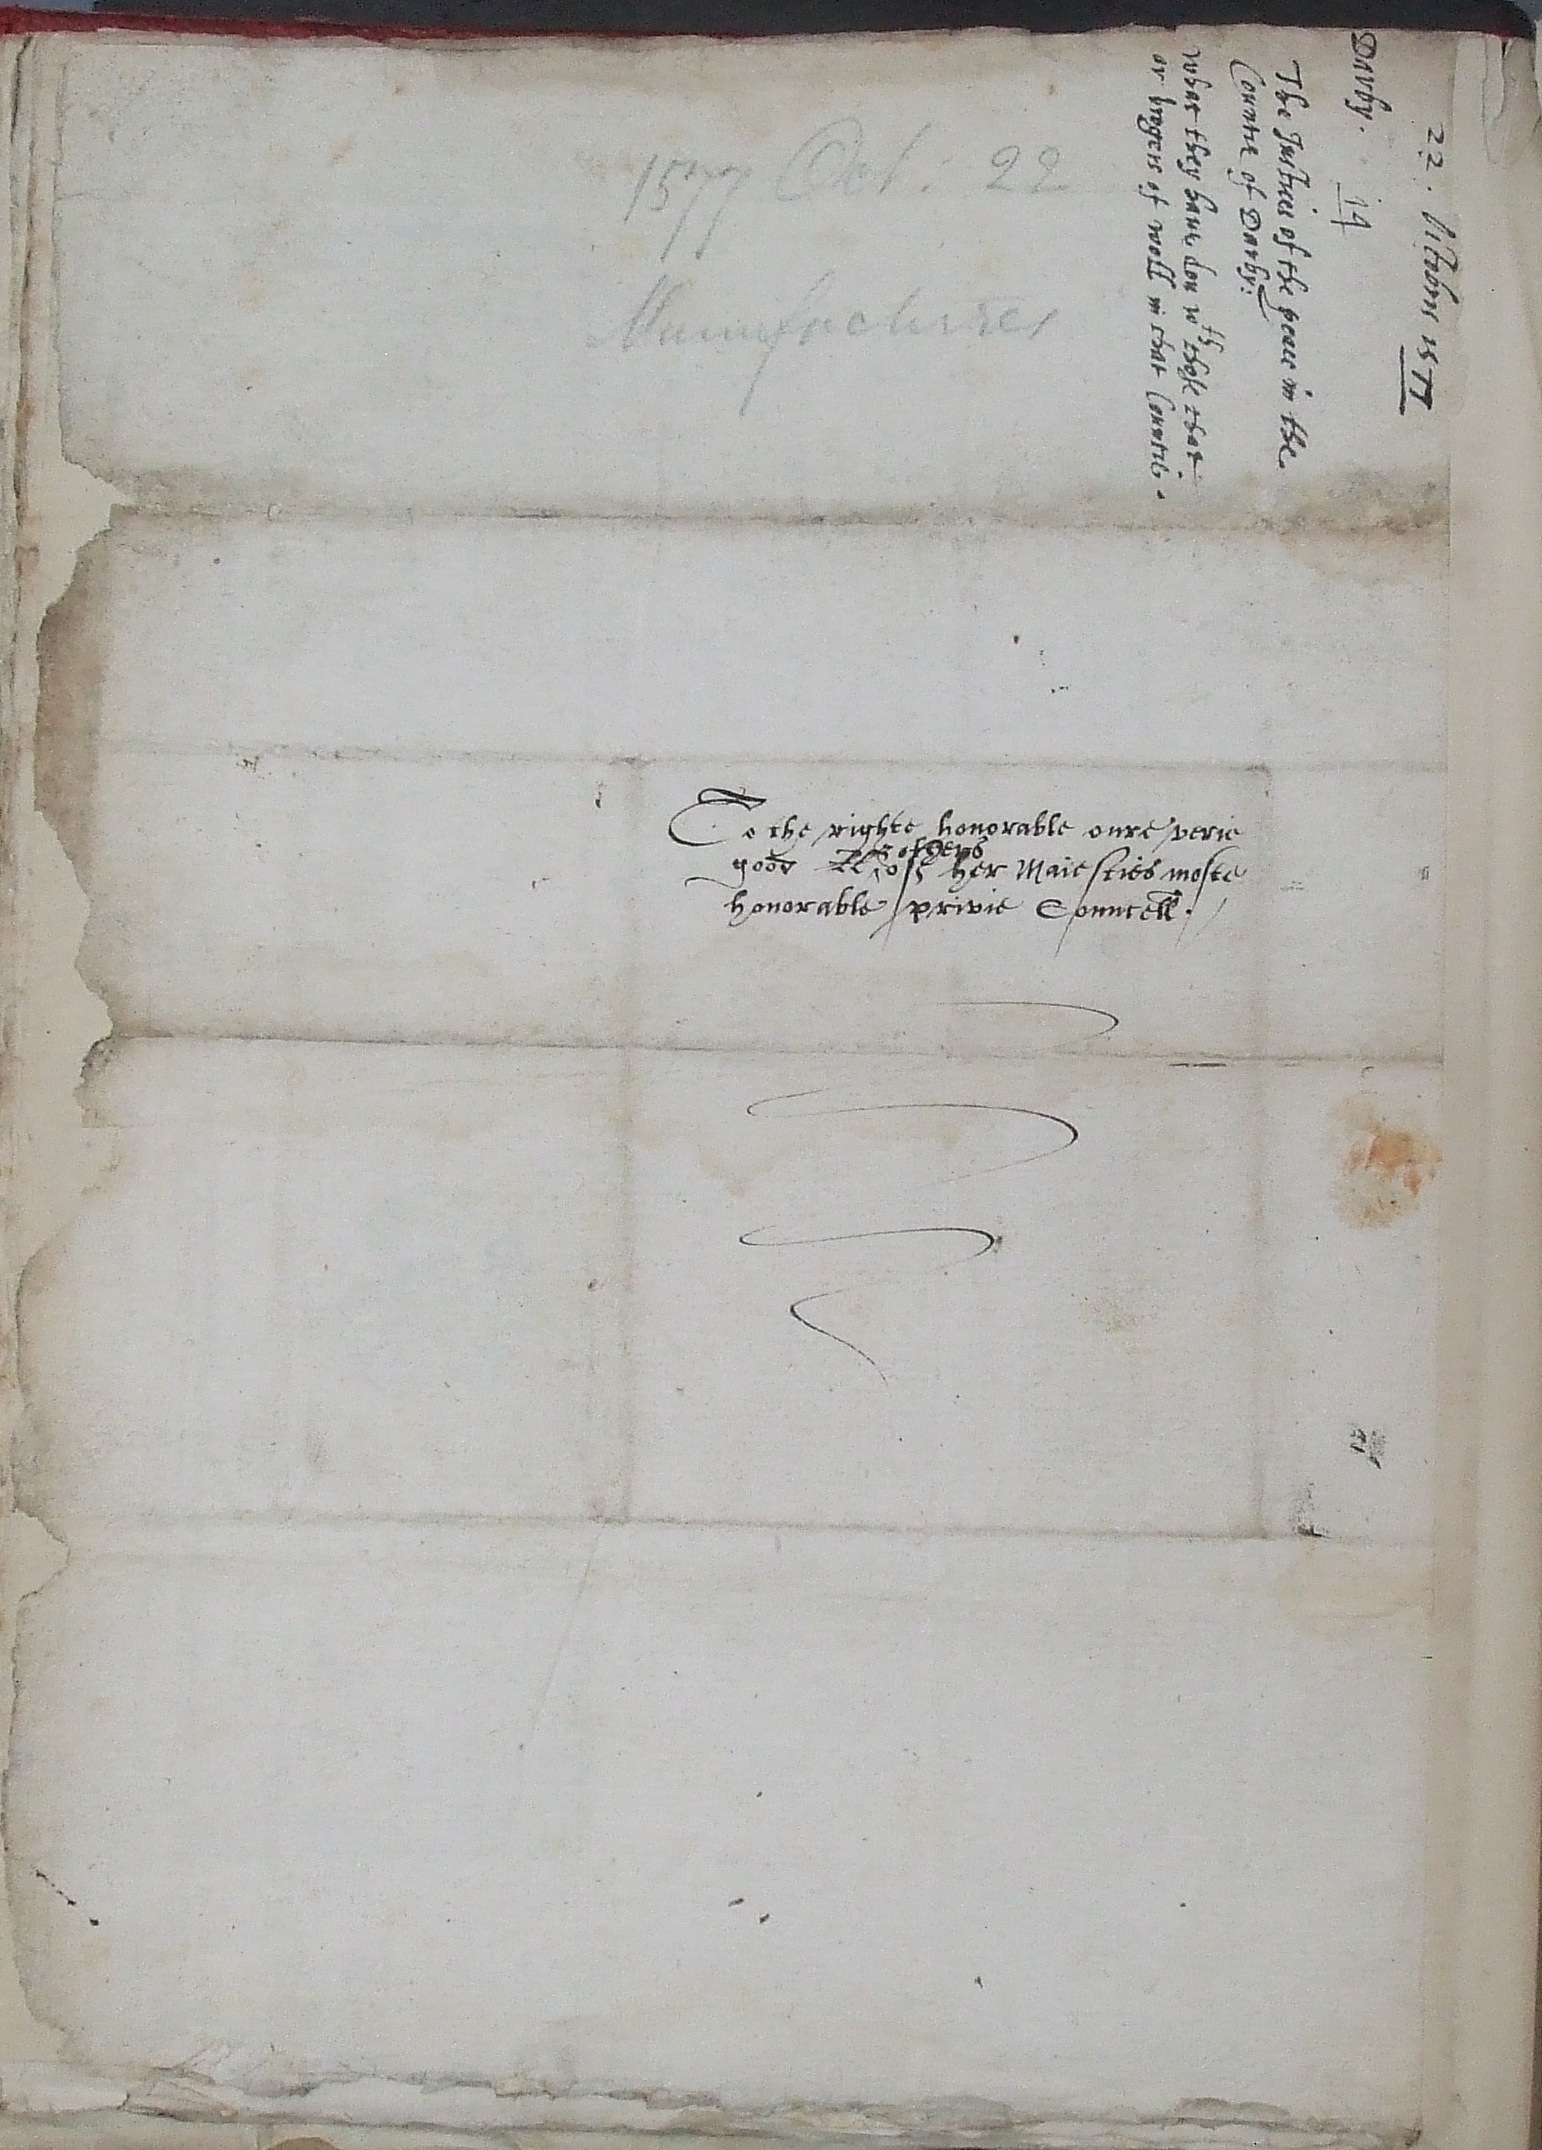 22. Octobris 1577
Darby.
19
The Justices of the peace in the
Countie of Darby:
what they haue don wth those that
ar brogers of woll in that Countie.
1577 Oct: 22
Manufactures
To the righte honorable oure verie
good LL & others
of her Maiesties moste
honorable privie Councell.